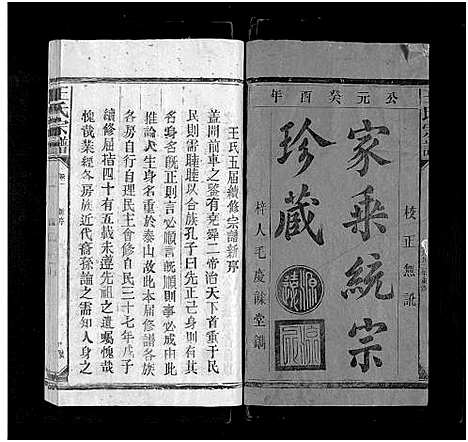 公元癸酉年
校正無訛
家乘統宗
珍藏
梓人毛慶謙堂鐫
王氏宗譜
王氏五屆續修宗譜新序
蓋聞前車之鑒有堯舜二帝治天下重于民
民則需睦睦以合族孔子曰先正己身則有其
名身名既正則言必順言既順則事必成由此
推論人生身名重於泰山故此本屆修譜各族
各房自行自理民主會修自民三十七年戊子
續修屈指四十有五載未遵先人之遺囑愧哉
愧哉葉經各房族近代裔孫論之需知人身之